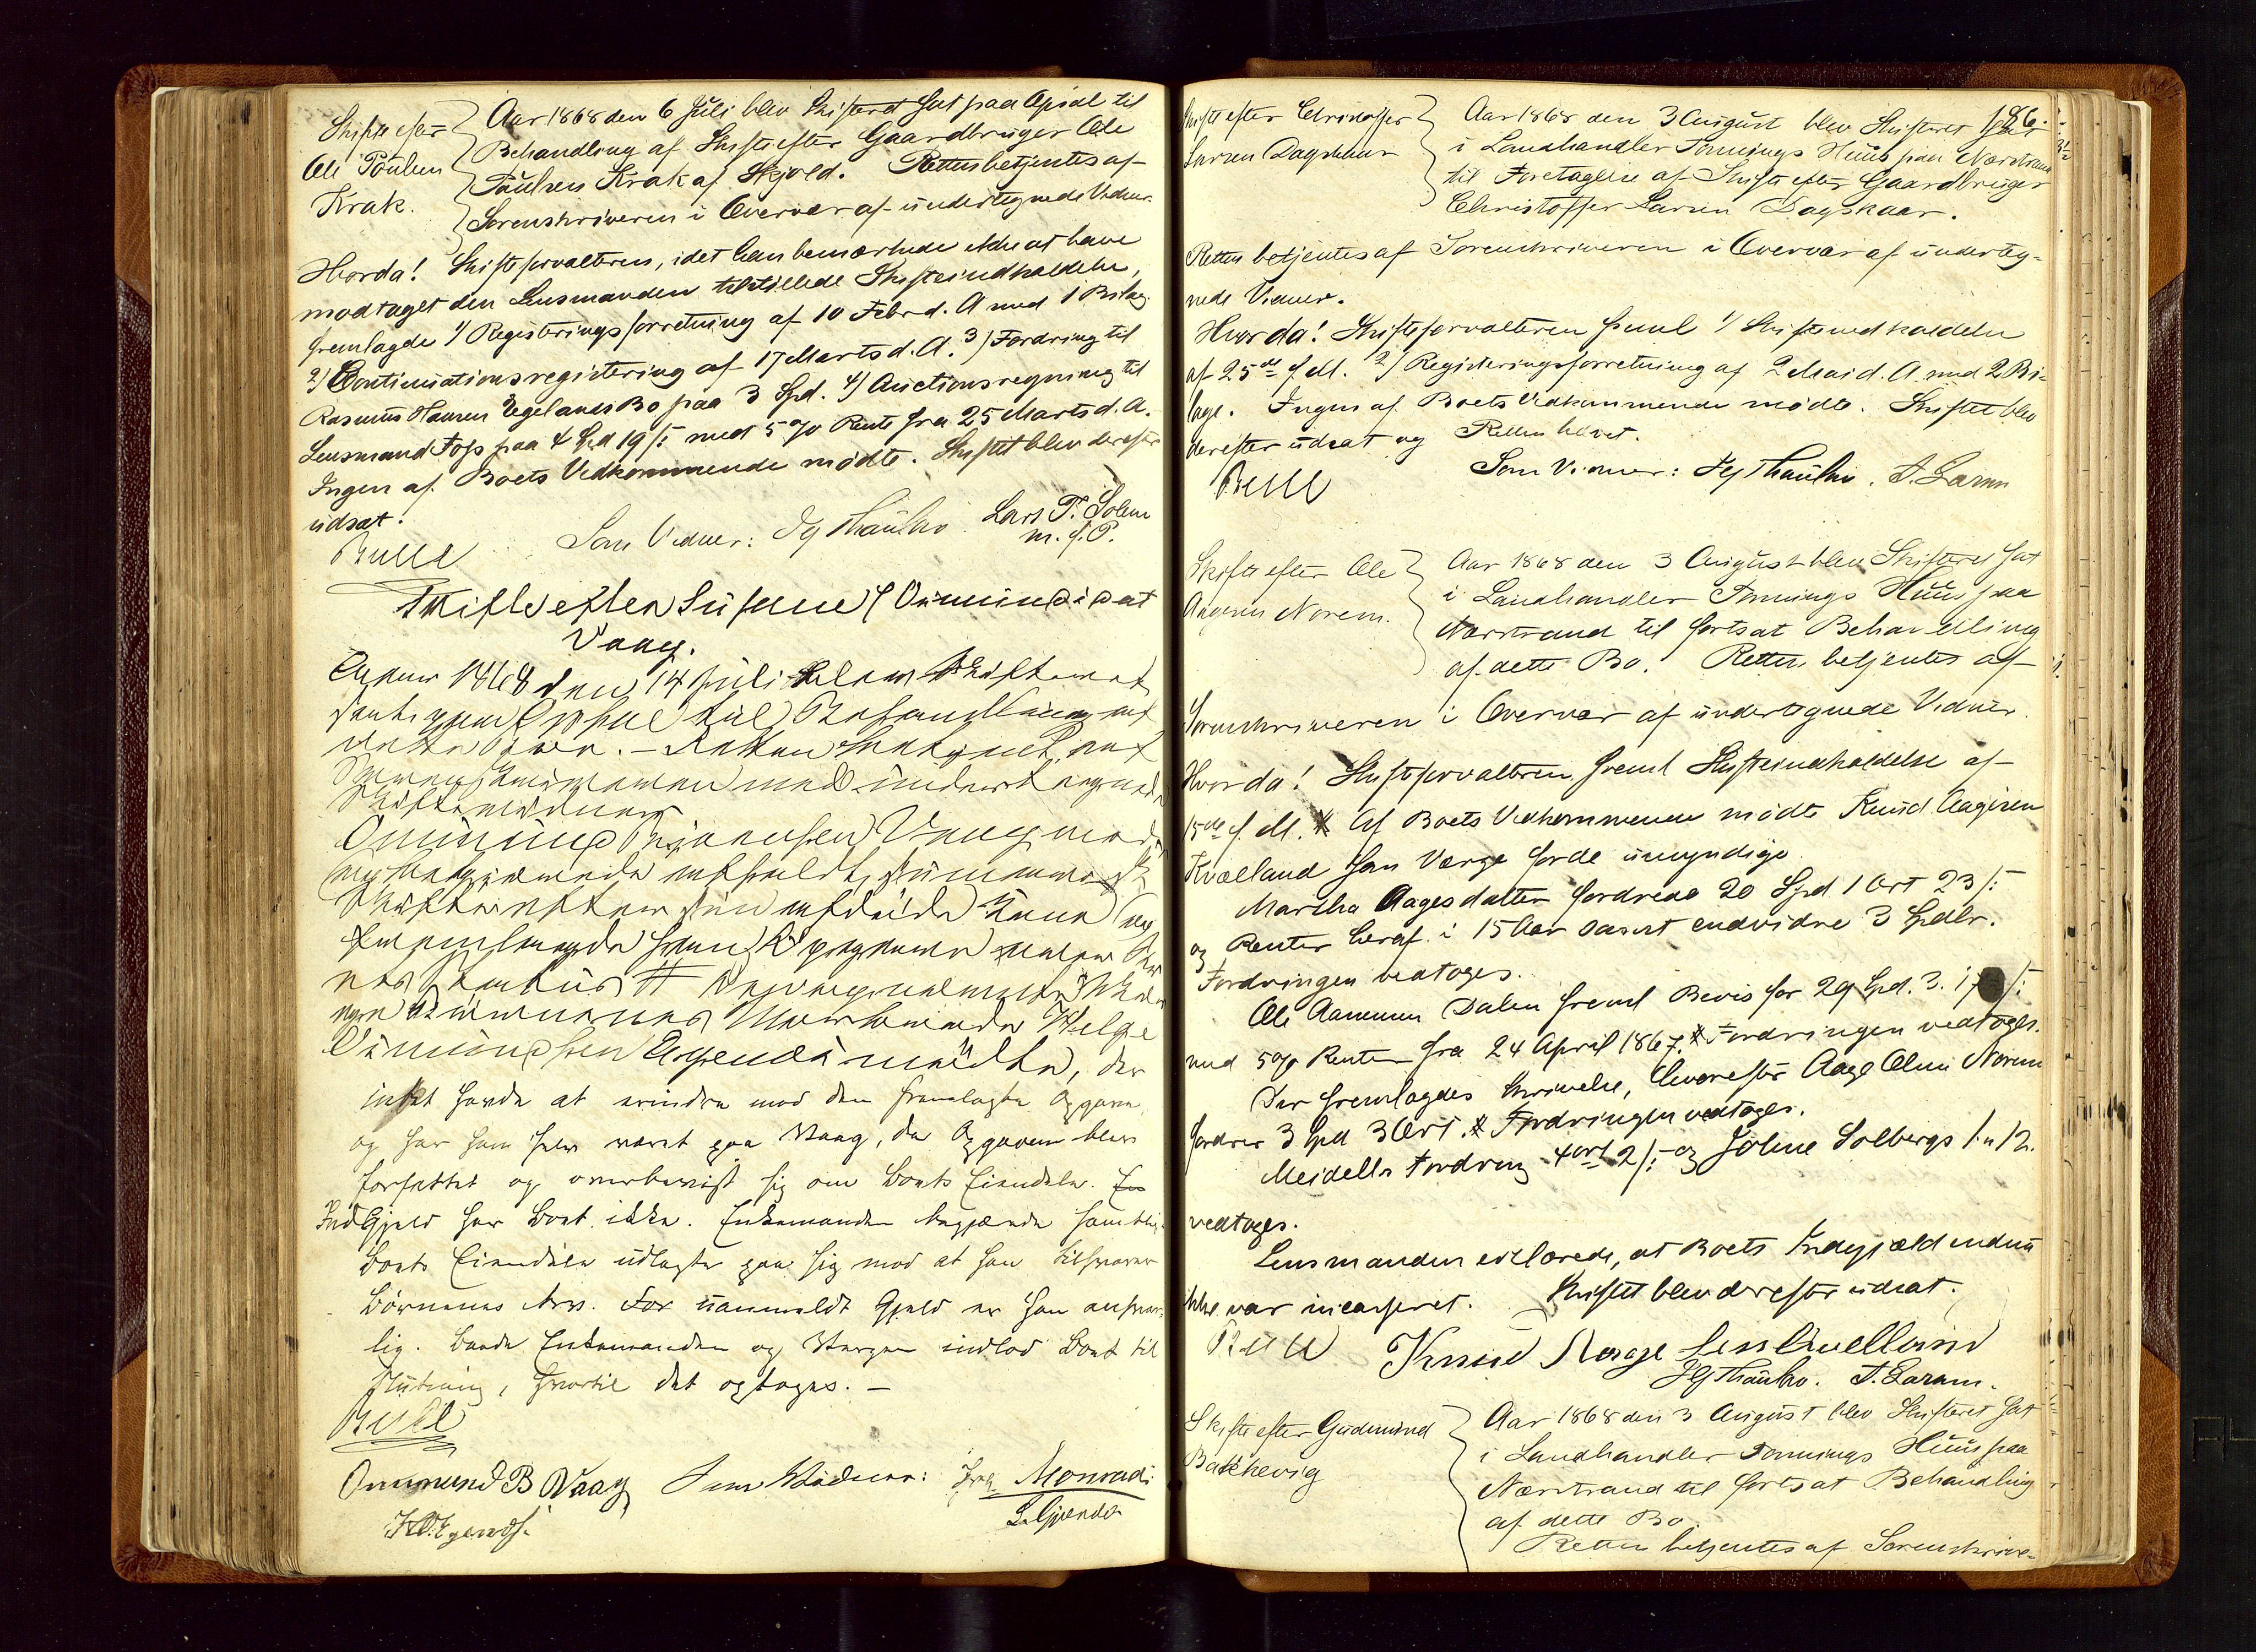 Skifte efter
Ole Poulsen
Krak.
Aar 1868 den 6 Juli blev Skifteret sat paa Opsal til
Behandling af Skifte efter Gaardbruger Ole
Poulsen Krak af Skjold. Retten betjentes af
Sorenskriveren i Overvær af undertegnede Vidner.
Hvorda! Skifteforvalteren, idet han bemærkede ikke at have
modtaget den Lensmanden tilstillede Skifteindkaldelse,
fremlagde 1/ Registeringsforretning af 10 Febr d. A med 1 Bilag.
2/ Continuationsregistering af 17 Marts d. A. 3) Fordring til
Rasmus Hansen Egelands Bo paa 3 Spd. 4) Auctionsregning til
Lensmand Foss paa 4 Spd 19 /: med 5 % Rente fra 25 Marts d. A.
Ingen af Boets Vedkommende mødte. Skiftet blev derefter
udsat.
Bull
Som Vidner: Jg Thaulow. Lars T. Solem
m. f. P.
Skifte efter Susane Omundsdat
Vaag.
Anno 1868 den 14 Juli blev Skifteret
sat paa Opsal til Behandling af
dette Skifte. – Retten betjent af
Sorenskriveren med undertegnede
Skiftevidner
Omund Bjørnsen Vaag mødte
Skifte efter sin afdøde Kone og
fremlagde
Børnenes Værge Helge
Omundsen Egende mødte, der
intet havde at erindre mod den fremlagte Opgave
og har han selv været paa Vaag, da Opgaven blev
forfattet og overbevist sig om Boets Eiendele. En
IndGjæld har Boet ikke. Enkemanden begjærede samtlige
Boets Eiendele udlagte paa sig mod at han tilsvarer
Børnenes Arv. For uanmeldt Gjæld er han ansvar-
lig. Baade Enkemanden og Værgen indlod Boet til
Slutning, hvortil det optages. –
Bull
Ommund B Vaag Som Vidner: Monrad
H. O. Egende L. Gjerde
186.
Skifte efter Christoffer
Larsen Dagskaar
Aar 1868 den 3 August blev Skifteret sat
i Landhandler Tønnings Huus paa Nærstrand
til Foretagelse af Skifte efter Gaardbruger
Christoffer Larsen Dagskaar.
Retten betjentes af Sorenskriveren i Overvær af underteg-
nede Vidner.
Hvorda! Skifteforvalteren freml 1/ Skifteindkaldelse
af 25de f. M. 2/ Registeringsforretning af 2 Mai d. A. med 2 Bi-
lage. Ingen af Boets Vedkommende mødte. Skiftet blev
derefter udsat og Retten hævet.
Bull
Som Vidner: Jg Thaulow. T. Larsen
Skifte efter Ole
Aagesen Norem.
Aar 1868 den 3 August blev Skifteret sat
i Landhandler Tønnings Huus paa
Nærstrand til fortsat Behandling
af dette Bo. Retten betjentes af
Sorenskriveren i Overvær af undertegnede Vidner.
Hvorda! Skifteforvalteren freml Skifteindkaldelse af
15de f. M. Af Boets Vedkommende mødte Knud Aagesen
Kvælland som Værge for de umyndige.
Martha Aagesdatter fordrede 20 Spd 1 Ort 23 /:
og Renter heraf i 15 Aar samt endvidre 3 Spdlr.
Fordringen vedtoges.
Ole Aanensen Dalen freml Bevis for 29 Spd. 3. 17 /:
med 5 % Renter fra 24 April 1867. Fordringen vedtoges.
Der fremlagdes Skrivelse, hvorefter Aage Olsen Norem
fordrer 3 Spd 3 Ort. Fordringen vedtoges.
Meidells Fordring 4 ort 2 /: og Johne Solbergs 1 " 12.
vedtoges.
Lensmanden erklærede, at Boets Indegjæld endnu
ikke var incasseret. Skiftet blev derefter udsat.
Bull Knud Aage sen Qvelland
Jg Thaulow. T. Larsen.
Skifte efter Gudmund
Bakkevig
Aar 1868 den 3 August blev Skifteret sat
i Landhandler Tønnings Huus paa
Nærstrand til fortsat Behandling
af dette Bo.
Retten betjentes af Sorenskrive-